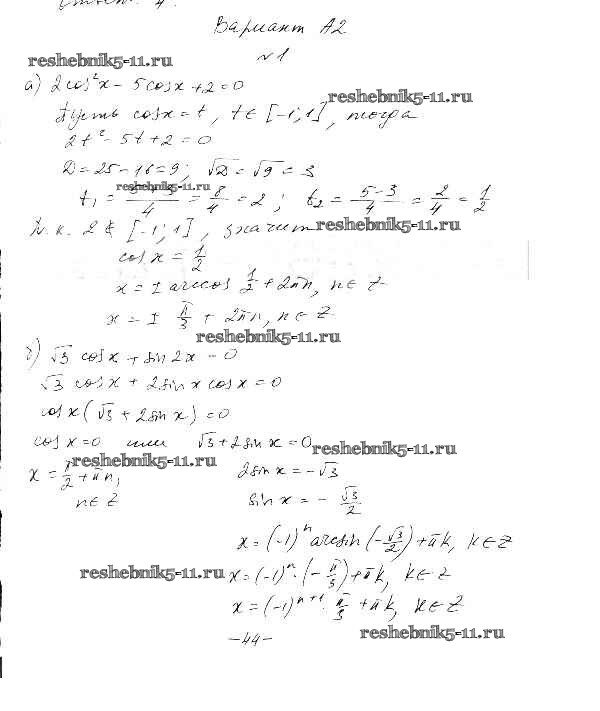 Вариант А2
reshebnik5-11.ru
№1
а) 2cos²x − 5cosx + 2 = 0
reshebnik5-11.ru
Пусть cosx = t, t ∈ [−1; 1], тогда
2t² − 5t + 2 = 0
D = 25 − 16 = 9; √D = √9 = 3
reshebnik5-11.ru
t₁ = /4 = 8/4 = 2; t₂ = (5−3)/4 = 2/4 = 1/2
Т.к. 2 ∉ [−1; 1], значит reshebnik5-11.ru
cos x = 1/2
x = ± arccos 1/2 + 2πn, n ∈ Z
x = ± π/3 + 2πn, n ∈ Z
reshebnik5-11.ru
б) √3 cosx + sin 2x = 0
√3 cosx + 2sin x cosx = 0
cos x (√3 + 2sin x) = 0
cos x = 0 или √3 + 2sin x = 0
reshebnik5-11.ru
reshebnik5-11.ru
x = π/2 + πn, 2sin x = −√3
n ∈ Z sin x = − √3/2
x = (−1)ⁿ arcsin (−√3/2) + πk, k ∈ Z
reshebnik5-11.ru x = (−1)ⁿ · (− π/3) + πk, k ∈ Z
x = (−1)ⁿ⁺¹ · π/3 + πk, k ∈ Z
−44−
reshebnik5-11.ru